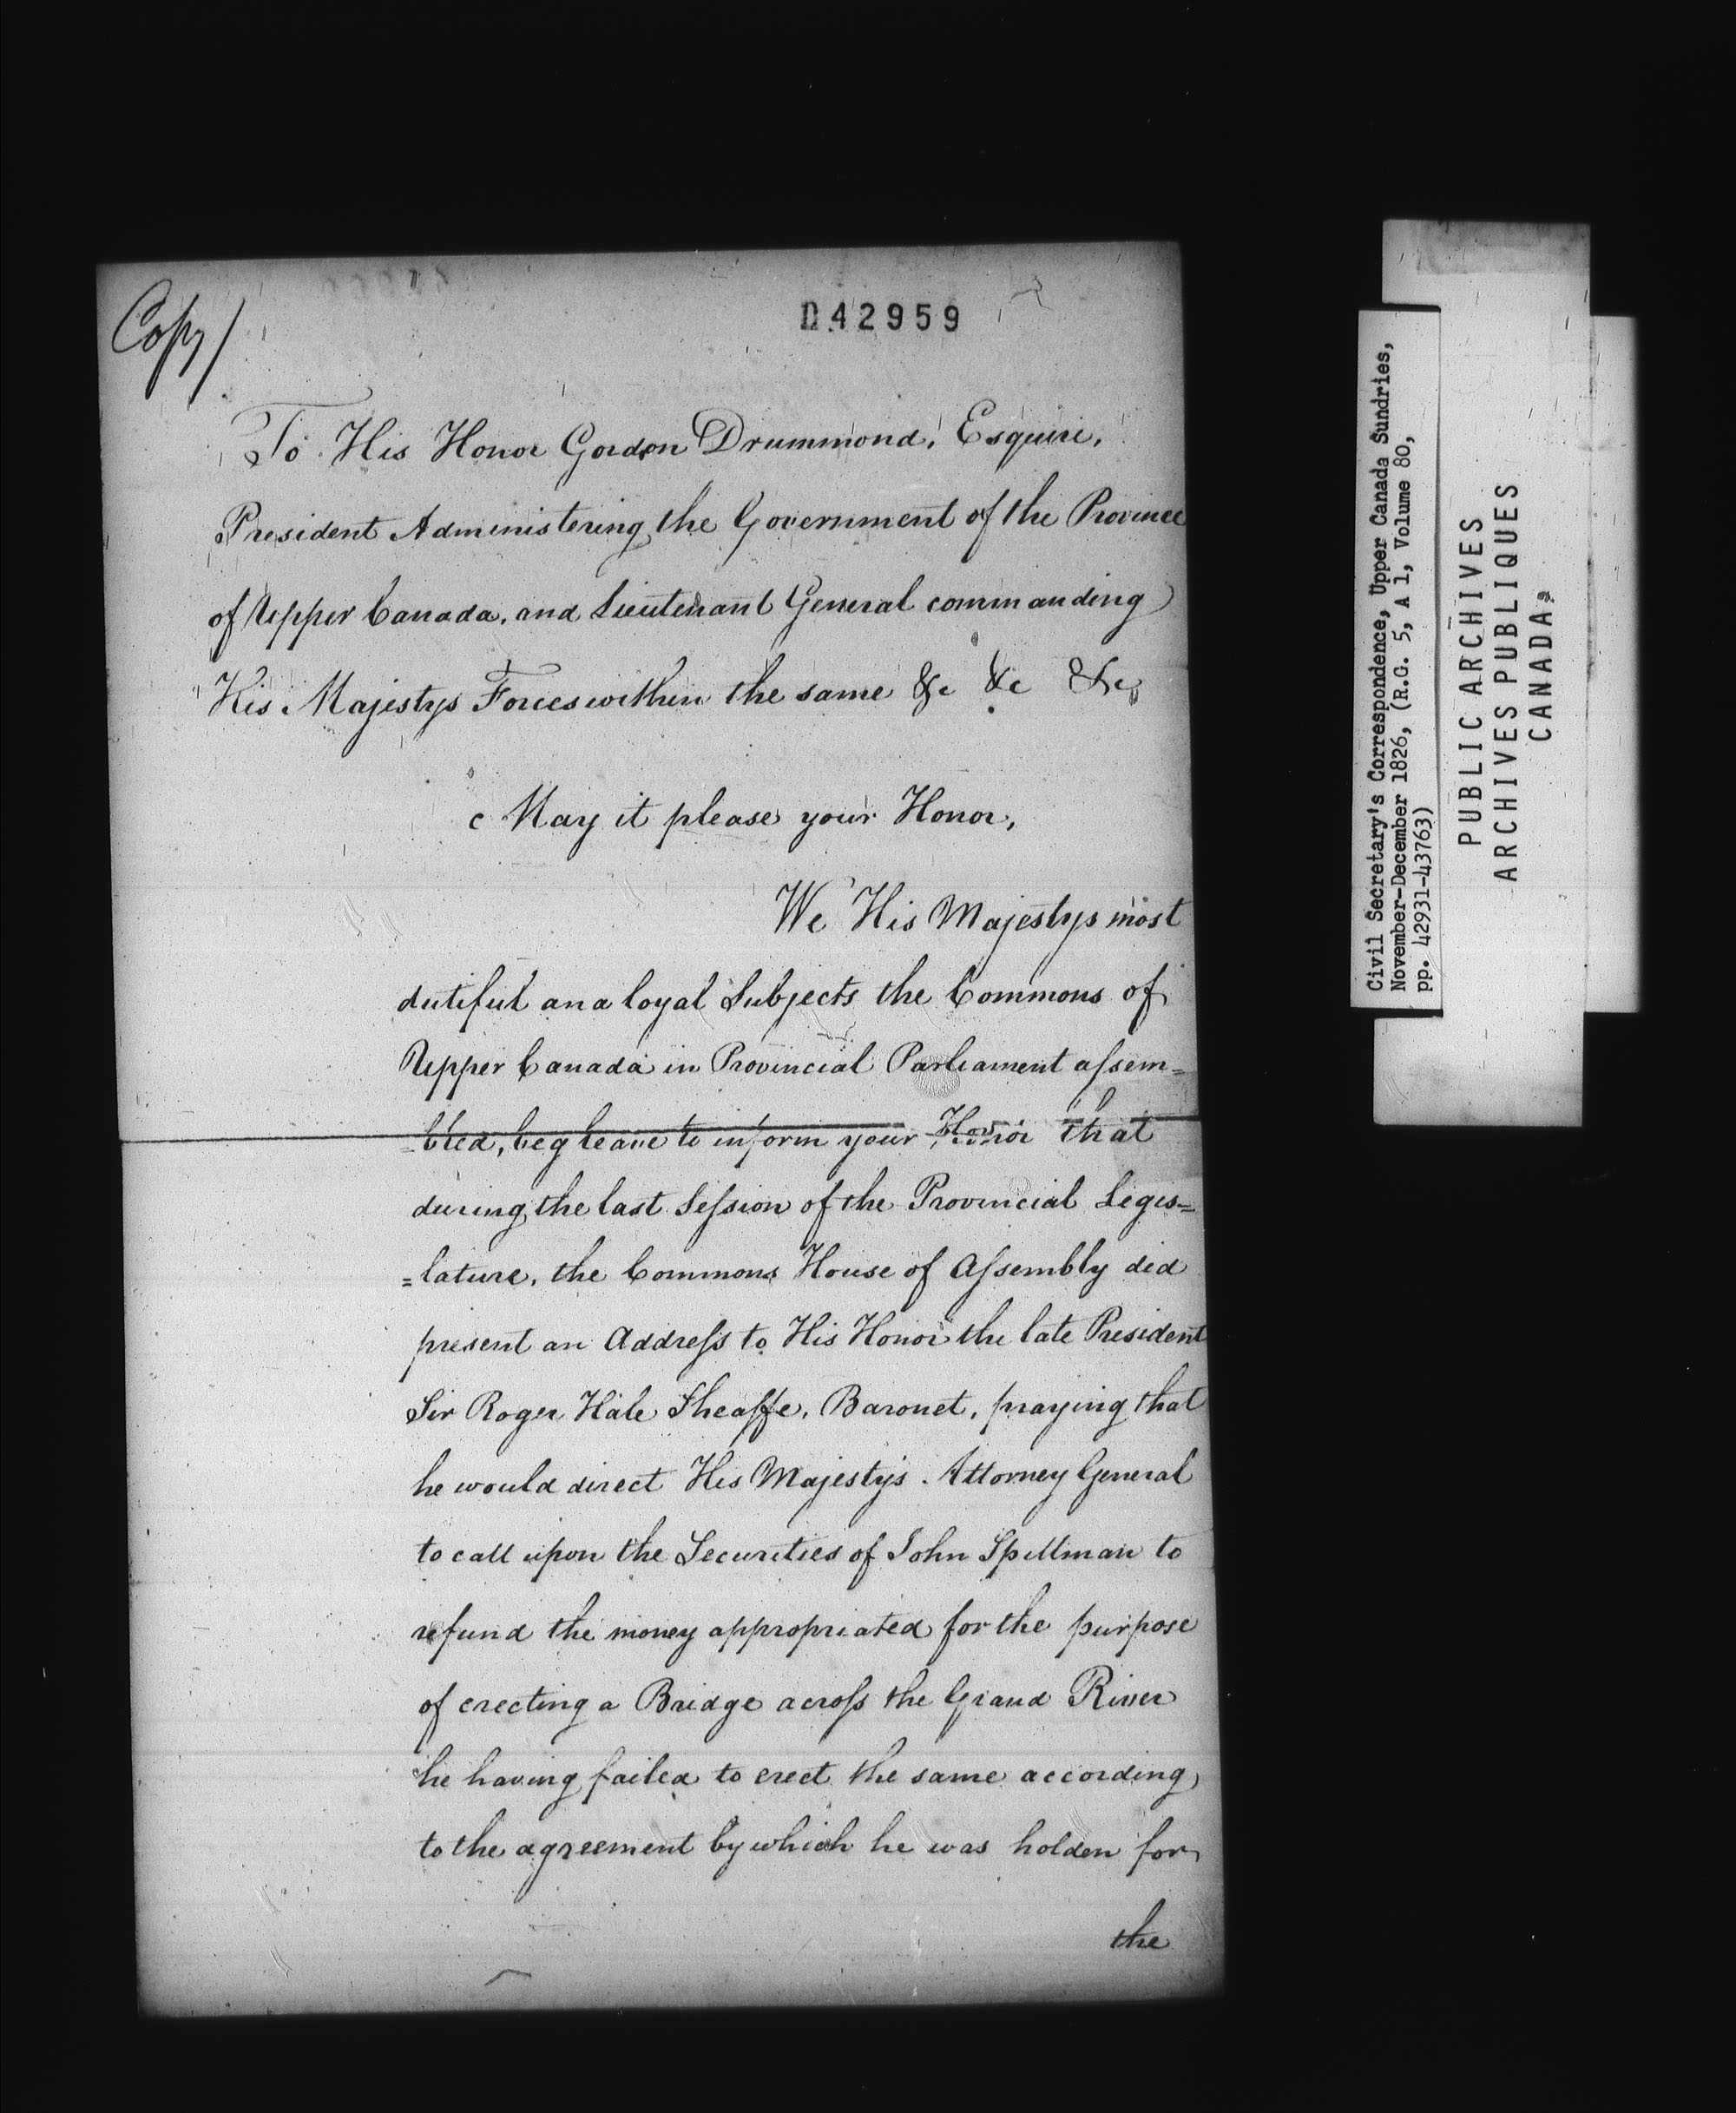 Copy/
042959
To His Honor Gordon Drummond, Esquire,
President Administering the Government of the Province
of Upper Canada, and Lieutenant General commanding
His Majestys Forces within the same &c &c &c,
May it please your Honor,
We His Majestys most
dutiful and loyal Subjects the Commons of
Upper Canada in Provincial Parliament assem=
=bled, beg leave to inform your Honor that
during the last Session of the Provincial Legis=
=lature, the Commons House of Assembly did
present an Address to His Honor the late President
Sir Roger Hale Sheaffe, Baronet, praying that
he would direct His Majesty's Attorney General
to call upon the Securities of John Spillman to
refund the money appropriated for the purpose
of erecting a Bridge across the Grand River
he having failed to erect the same according
to the agreement by which he was holden for
the
Civil Secretary's Correspondence, Upper Canada Sundries,
November-December 1826, (R.G. 5, A 1, Volume 80,
pp. 42931-43763)
PUBLIC ARCHIVES
ARCHIVES PUBLIQUES
CANADA